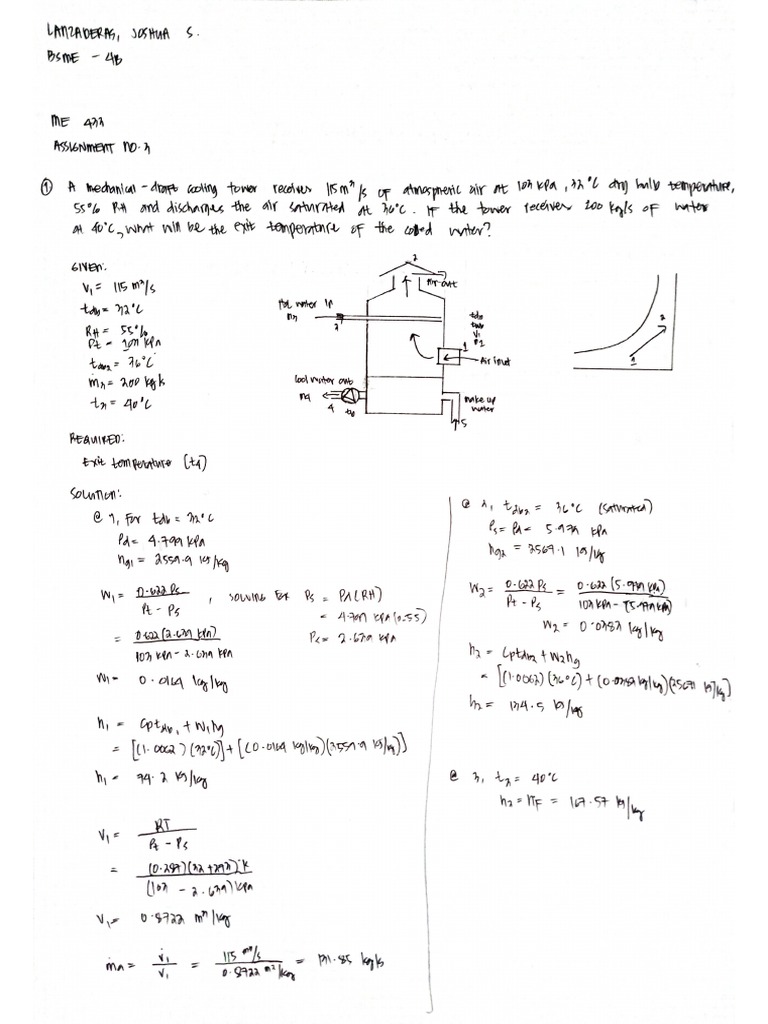 LANZADERAS, JOSHUA S.
BSME - 4B
ME 433
ASSIGNMENT NO. 3
① A mechanical-draft cooling tower receives 115 m³/s of atmospheric air at 103 kPa, 32°C dry bulb temperature,
55% RH and discharges the air saturated at 36°C. If the tower receives 200 kg/s of water
at 40°C, what will be the exit temperature of the cooled water?
GIVEN:
V₁ = 115 m³/s
tdb = 32°C
RH = 55%
Pt = 103 kPa
tdb2 = 36°C
ṁ₃ = 200 kg/s
t₃ = 40°C
2
Air out
Hot water in
m₃
3
tdb
twb
V₁
1
Air inlet
Cool water out
m4
4
t4
make up
water
5
2
1
REQUIRED:
Exit temperature (t4)
SOLUTION:
@ 1, For tdb = 32°C
Pd = 4.799 kPa
hg1 = 2559.9 kJ/kg
W₁ = 0.622 Ps / Pt - Ps , SOLVING FOR Ps = Pd(RH)
= 4.799 kPa (0.55)
Ps = 2.639 kPa
= 0.622 (2.639 kPa) / 103 kPa - 2.639 kPa
W₁ = 0.0164 kg/kg
h₁ = Cptdb₁ + W₁hg
= [(1.0062)(32°C)] + [(0.0164 kg/kg)(2559.9 kJ/kg)]
h₁ = 74.2 kJ/kg
V₁ = RT / Pt - Ps
= (0.287)(32+273) K / (103 - 2.639) kPa
V₁ = 0.8722 m³/kg
ṁa = V̇₁ / V₁ = 115 m³/s / 0.8722 m³/kg = 131.85 kg/s
@ 2, tdb2 = 36°C (saturated)
Ps = Pd = 5.979 kPa
hg2 = 2567.1 kJ/kg
W₂ = 0.622 Ps / Pt - Ps = 0.622 (5.979 kPa) / 103 kPa - (5.979 kPa)
W₂ = 0.0383 kg/kg
h₂ = Cptdb2 + W₂hg
= [(1.0062)(36°C) + (0.0383 kg/kg)(2567.1 kJ/kg)]
h₂ = 134.5 kJ/kg
@ 3, t₃ = 40°C
h₃ = hF = 167.57 kJ/kg